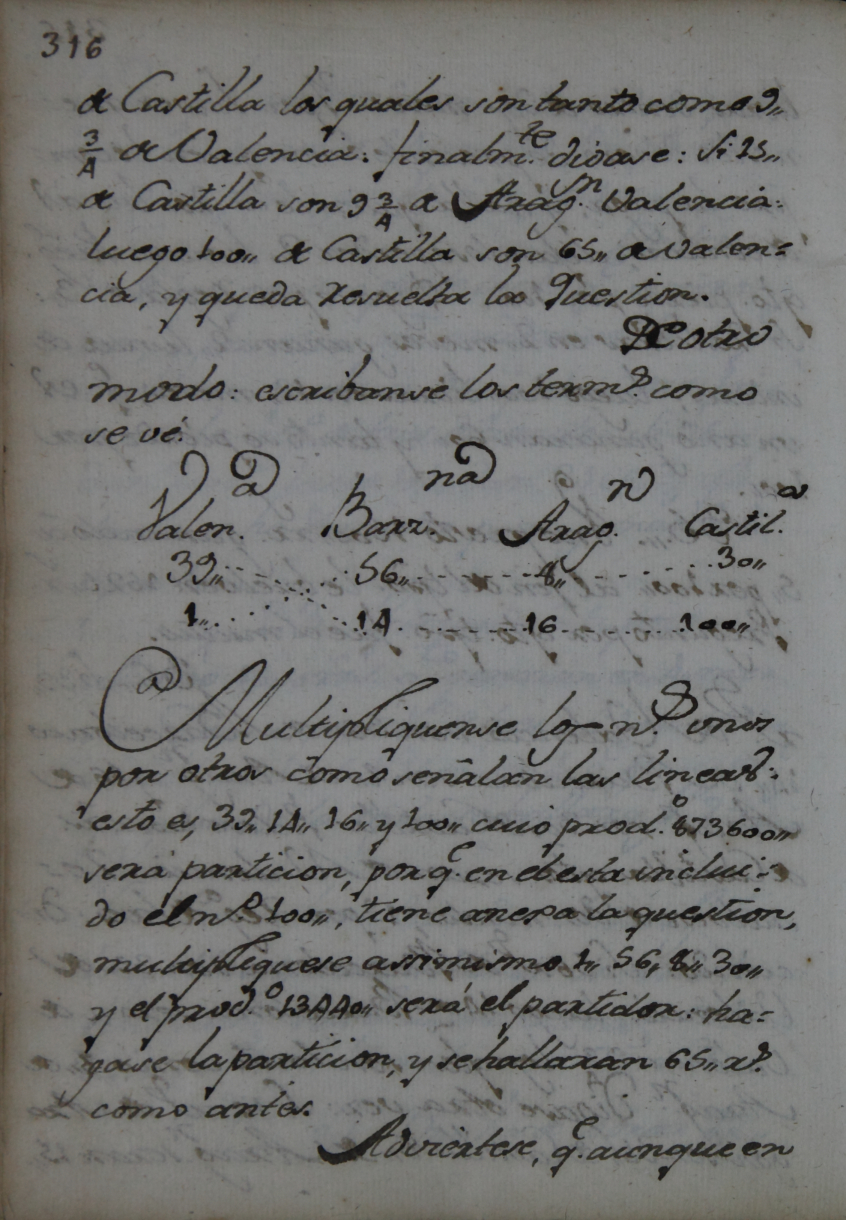 316
de Castilla los quales son tanto como 9,,
3/4 de Valencia: finalm.te digase: si 15,,
de Castilla son 9 3/4 de Arag.sn Valencia:
luego 100,, de Castilla son 65,, de Valen=
cia, y queda resuelta la Question.
De otro
modo: escribanse los term.s como
se vé.
Valen.a Barz.na Arag.n Castil.a
39,, 56,, 8,, 30,,
1,, 14 16 100,,
Multipliquense los n.s unos
por otros como señalan las lineas:
esto es, 39,, 14,, 16,, y 100,, cuio prod.o 873600,,
será particion, porq.e en el esta inclui=
do el n.o 100,,, tiene anexa la question,
multipliquese assimismo 1,, 56,, 8,, 30,,
y el prod.o 13440,, será el partidor: ha=
gase la particion, y se hallaran 65,, r.s
como antes.
Adviertese, q.e aunque en